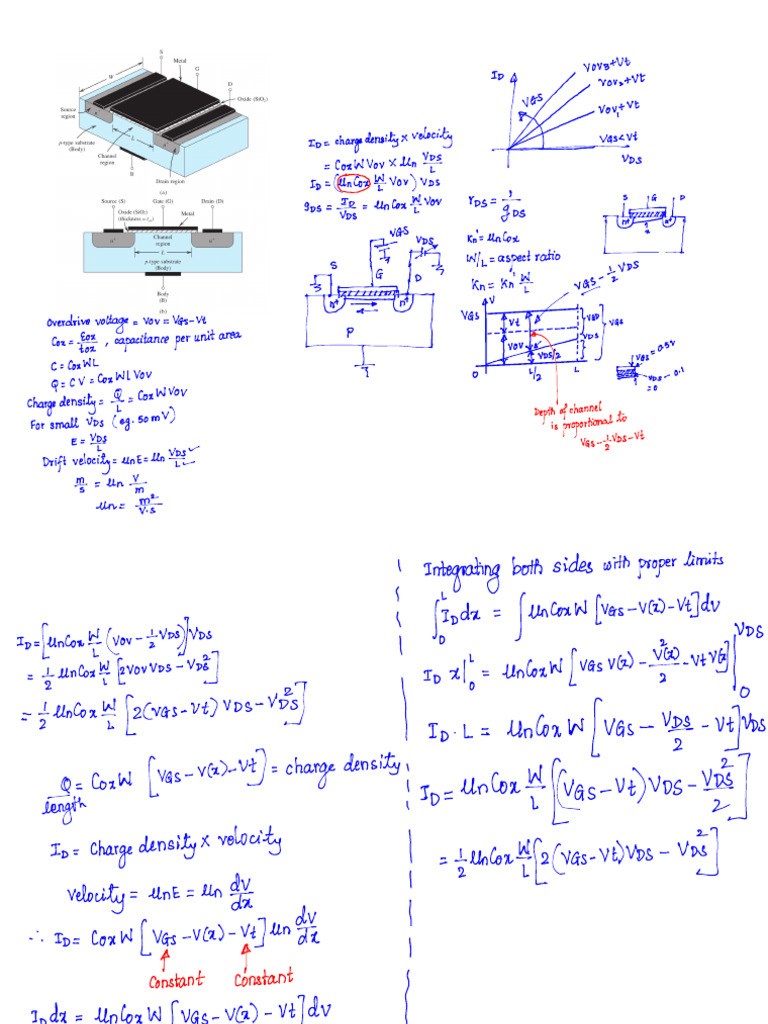 S
Metal
G
D
W
Oxide (SiO2)
Source
region
L
p-type substrate
(Body)
Channel
region
Drain region
B
(a)
Source (S) Gate (G) Drain (D)
Oxide (SiO2)
(thickness = tox)
Metal
n+ Channel n+
region
L
p-type substrate
(Body)
Body
(B)
(b)
Overdrive voltage = Vov = VGS-Vt
Cox = εox/tox , capacitance per unit area
C = CoxWL
Q = CV = CoxWL Vov
Charge density = Q/L = CoxWVov
For small VDS (eg. 50mV)
E = VDS/L
Drift velocity = μnE = μn VDS/L
m/s = μn V/m
μn = m²/V.s
ID = charge density x velocity
= CoxWVov x μn VDS/L
ID = (μnCox W/L Vov) VDS
gDS = ID/VDS = μnCox W/L Vov
VGS
VDS
S G D
n+ n+
P
ID
VGS
Vov3+Vt
Vov2+Vt
Vov1+Vt
VGS<Vt
VDS
rDS = 1/gDS
Kn' = μnCox
W/L = aspect ratio
Kn = Kn' W/L
S G D
V
VGS - 1/2 VDS
VGS
Vt
Vov
VDS/2
VGD
VDS
VGS
0 L/2 L
VGS = 0.5V
VDS - 0.1
= 0
Depth of channel
is proportional to
VGS - 1/2 VDS - Vt
ID = [μnCox W/L (Vov - 1/2 VDS)] VDS
= 1/2 μnCox W/L [2Vov VDS - VDS²]
= 1/2 μnCox W/L [2(VGS-Vt) VDS - VDS²]
Q/length = CoxW [VGS-V(x)-Vt] = charge density
ID = Charge density x velocity
Velocity = μnE = μn dv/dx
∴ ID = CoxW [VGS-V(x)-Vt] μn dv/dx
Constant Constant
IDdx = μnCoxW [VGS-V(x)-Vt] dv
Integrating both sides with proper limits
∫0^L IDdx = ∫ μnCoxW [VGS-V(x)-Vt] dv
ID x|0^L = μnCoxW [VGS V(x) - V²(x)/2 - Vt V(x)]|0^VDS
ID.L = μnCoxW [VGS - VDS/2 - Vt] VDS
ID = μnCox W/L [(VGS-Vt) VDS - VDS²/2]
= 1/2 μnCox W/L [2(VGS-Vt) VDS - VDS²]